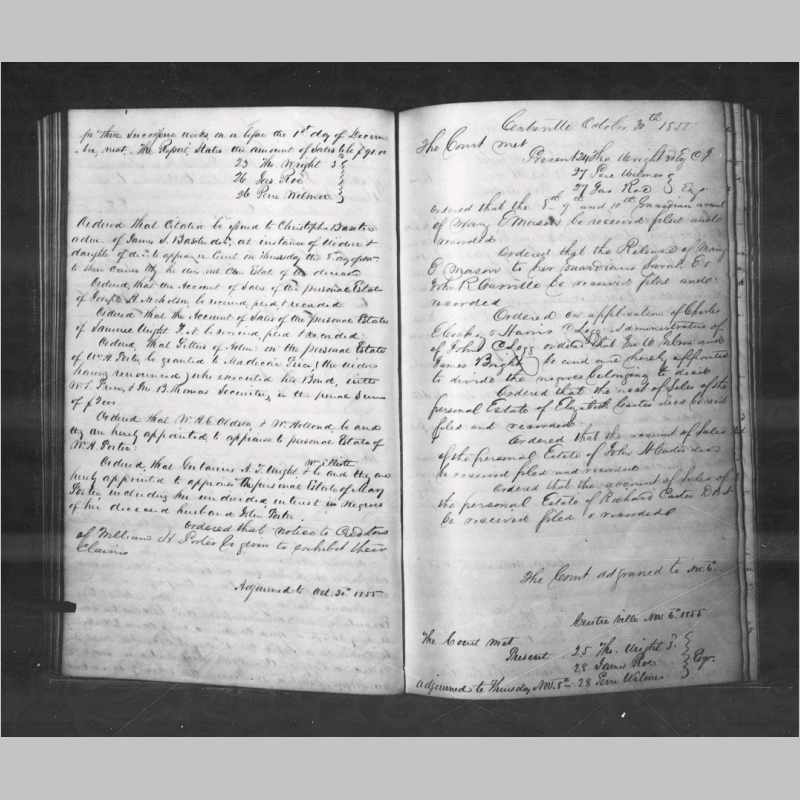 for three successive weeks on or before the 1st day of Decem
ber, next. The Report States the amount of Sales to be $
25 Tho Wright 3d
26 Jas Roe
26 Pere Wilmer
Ordered that Citation be issued to Christopher
admr of James S. at instance of Widow &
daughter of decd to appear in Court on Thursday the 8 day of
to shew cause why he does not the Estate of the deceased
Ordered, that the Account of Sales of the personal Estate
of Joseph H. Nicholson be received, filed & recorded
Ordered that the Account of Sales of the personal Estate
of Samuel Wright T. be received, filed & recorded.
Ordered, that Letters of Admn on the personal Estate
of Wm H. Porter be granted to Madison the Widow
having renounced, who executed his Bond, with
W. S. & M. B. Thomas Securities, in the penal Sum
of $
Ordered that W. H. C. & W. Holland be and
they are hereby appointed to appraise the personal Estate of
W. H. Porter.
Ordered, that A. T. Wright & be and they are
hereby appointed to appraise the personal Estate of Mary
Porter including her undivided interest in Negroes
of her deceased husband John Porter.
Ordered that notice to Creditors
of William H Porter be given to exhibit their
Claims
Adjourned to Oct. 30th 1855
Centreville October 30th 1855
The Court met
Present 24 Tho Wright 3d Esq C J
27 Pere Wilmer
27 Jas Roe Esqr
ordered that the 8th 9th and 10th Guardian account
of Mary E Mason be received filed and
recorded
Ordered that the Release of Mary
E Mason to her guardians Sarah E &
John R Carville be received filed and
recorded
Ordered on application of Charles
C & Harris C Legg Administrators of
of John C Legg ordered that and
James Bright be and are hereby appointed
to divide the negroes belonging to decd
Ordered that the acct of Sales of the
personal Estate of Elizabeth Carter decd be recd
filed and recorded
Ordered that the account of Sales
of the personal Estate of John H Carter decd
be received filed and recorded
Ordered that the account of Sales of
the personal Estate of Richard Carter
be received filed & recorded
The Court adjourned to Nov. 6th
Centre Ville Nov 6th 1855
The Court met
Present 25 Tho. Wright 3.
28 James Roe Esqr.
adjourned to Thursday Nov. 8th 28 Pere Wilmer